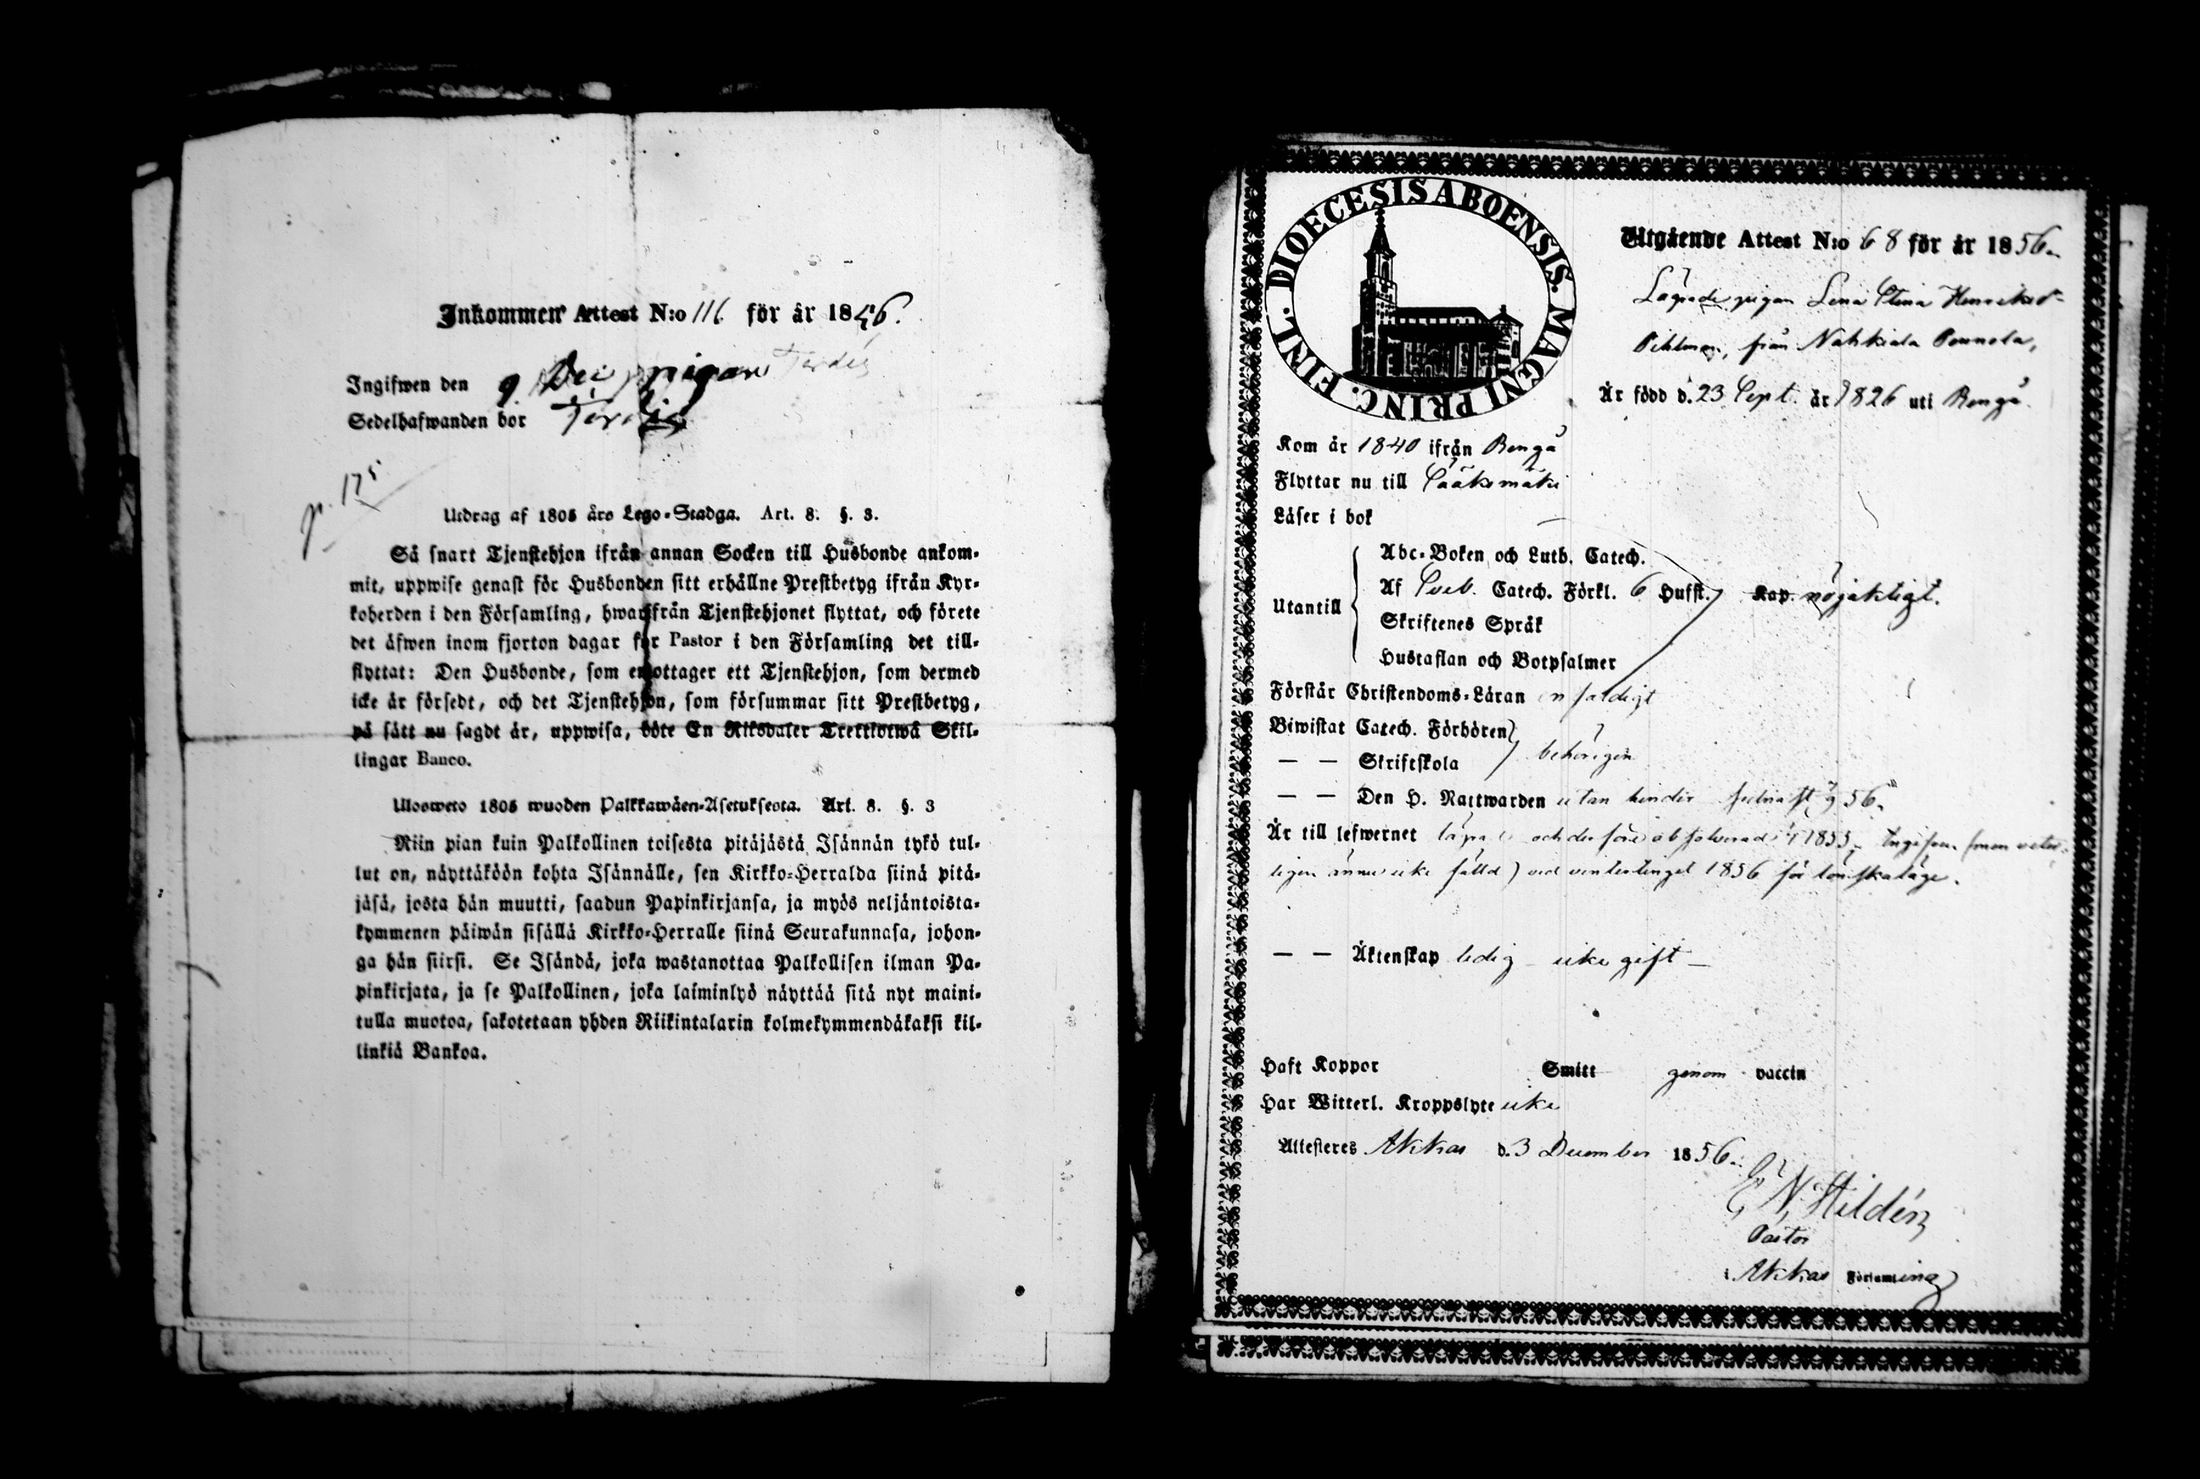 Inkommen Attest N:o 111 för år 1856.
Ingifwen den 9 Dec pigan
Sedelhafwanden bor
p. 175
Utdrag af 1805 års Lego-Stadga. Art. 8. §. 3.
Så snart Tjenstehjon ifrån annan Socken till Husbonde ankom-
mit, uppwise genast för Husbonden sitt erhållne Prestbetyg ifrån Kyr-
koherden i den Församling, hwarifrån Tjenstehjonet flyttat, och förete
det äfwen inom fjorton dagar för Pastor i den Församling det till-
flyttat: Den Husbonde, som emottager ett Tjenstehjon, som dermed
icke är försedt, och det Tjenstehjon, som försummar sitt Prestbetyg,
på sätt nu sagdt är, uppwisa, böte En Riksdaler Trettiotwå Skil-
lingar Banco.
Ulosweto 1805 wuoden Palkkawäen-Asetuksesta. Art. 8. §. 3
Niin pian kuin Palkollinen toisesta pitäjästä Isännän tykö tul-
lut on, näyttäköön kohta Isännälle, sen Kirkko-Herralda siinä pitä-
jäsä, josta hän muutti, saadun Papinkirjansa, ja myös neljäntoista-
kymmenen päiwän sisällä Kirkko-Herralle siinä Seurakunnasa, johon-
ga hän siirsi. Se Isändä, joka wastanottaa Palkollisen ilman Pa-
pinkirjata, ja se Palkollinen, joka laiminlyö näyttää sitä nyt maini-
tulla muotoa, sakotetaan yhden Riikintalarin kolmekymmendäkaksi kil-
linkiä Bankoa.
DIOECESIS ABOENSIS. MAGNI PRINC. FINL.
Utgående Attest N:o 68 för år 1856.
Lägrade pigan Lena Stina Henriksd:r
Pihlman, från Nahkiala Pennola,
Är född d. 23 Sept. år 1826 uti Rengo
Kom år 1840 ifrån Rengo
Flyttar nu till Sääksmäki
Läser i bok
Abc-Boken och Luth. Catech.
Utantill Af Sveb. Catech. Förkl. 6 Hufst. Kap. nöjaktigt.
Skriftenes Språk
Hustaflan och Botpsalmer
Förstår Christendoms-Läran enfaldigt
Biwistat Catech. Förhören
— — Skriftskola behörigen
— — Den H. Nattwarden utan hinder 56.
Är till lefwernet lägrad och derföre absolverad 1855.
ännu icke fälld) vid vintertinget 1856 för lönskaläge.
— — Äktenskap ledig icke gift
Haft Koppor Smitt genom vaccin
Har Witterl. Kroppslyte icke
Attesteres Akkas d. 3 December 1856.
E N Hildén
Pastor
i Akkas Församling